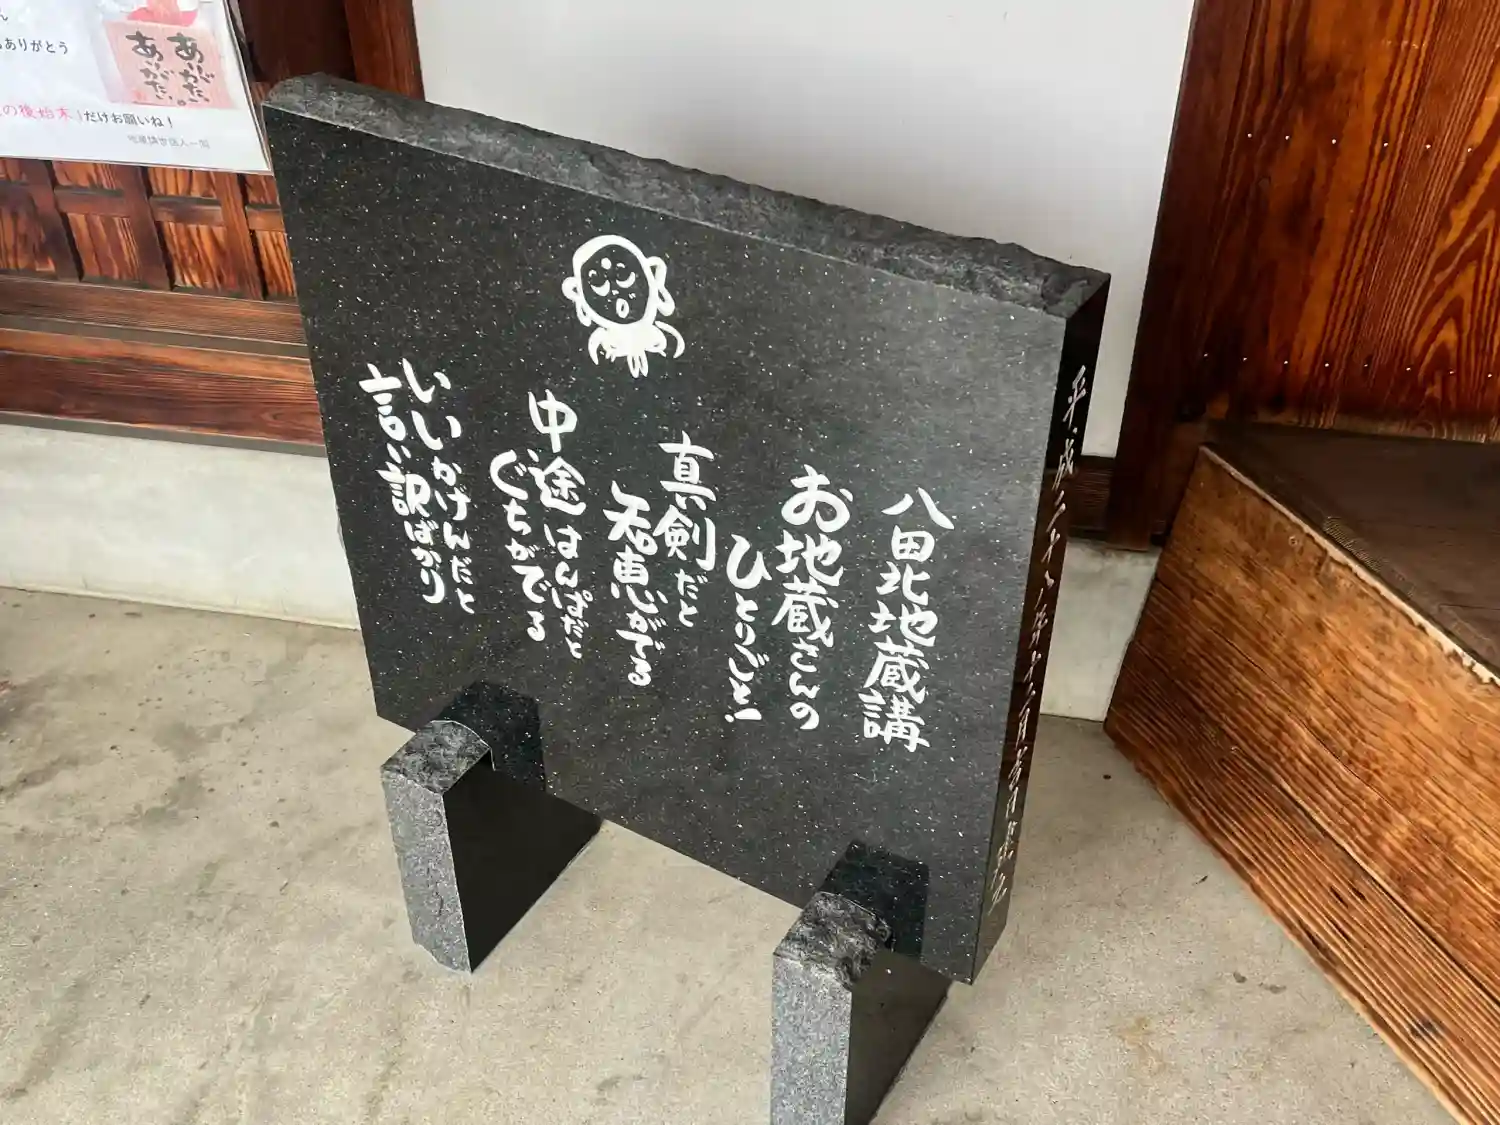 八田北地蔵講
お地蔵さんの
ひとりごと!
真剣だと
知恵がでる
中途はんぱだと
ぐちがでる
いいかげんだと
言い訳ばかり
ありがとう
ありがたい
ありがたい。
の後始末」だけお願いね!